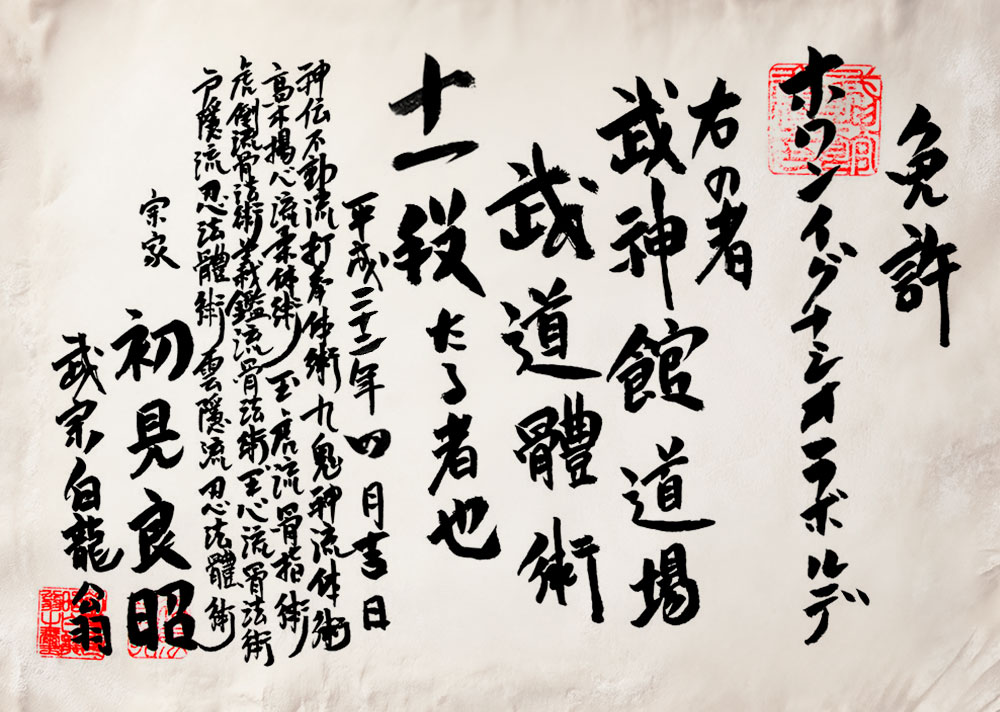 免許
ホワンイグナシオラボルデ
右の者
武神館道場
武道體術
十一段たる者也
平成二十二年四月吉日
神伝不動流打拳体術九鬼神流体術
高木揚心流柔体術玉虎流骨指術
虎倒流骨法術義鑑流骨法術玉心流骨法術
戸隠流忍法體術雲隠流忍法體術
宗家
初見良昭
武宗白龍翁